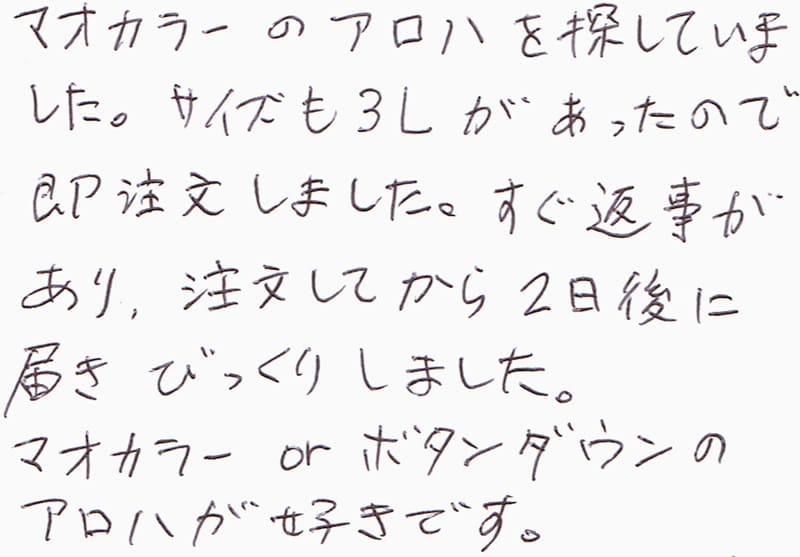 マオカラーのアロハを探していま
した。サイズも3Lがあったので
即注文しました。すぐ返事が
あり、注文してから2日後に
届きびっくりしました。
マオカラー or ボタンダウンの
アロハが好きです。